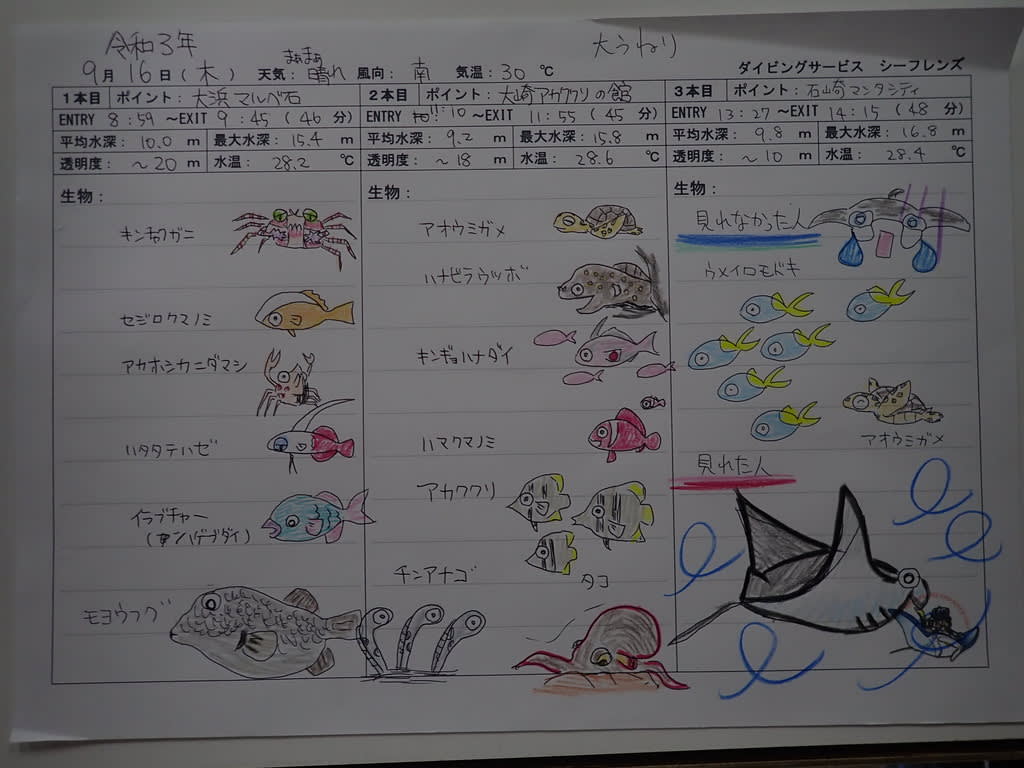 令和3年
大うねり
まぁまぁ
9月16日(木) 天気:晴れ 風向:南 気温:30℃
ダイビングサービス シーフレンズ
1本目 ポイント:大浜マルベ石
ENTRY 8:59 ~EXIT 9:45 (46分)
平均水深: 10.0 m 最大水深: 15.4 m
透明度: ~20 m 水温: 28.2 ℃
生物:
キンチャクガニ
セジロクマノミ
アカホシカニダマシ
ハタタテハゼ
イラブチャー
(ナンヨウブダイ)
モヨウフグ
2本目 ポイント:大崎アカククリの館
ENTRY 11:10 ~EXIT 11:55 (45分)
平均水深: 9.2 m 最大水深: 15.8 m
透明度: ~18 m 水温: 28.6 ℃
生物:
アオウミガメ
ハナビラウツボ
キンギョハナダイ
ハマクマノミ
アカククリ
チンアナゴ
タコ
3本目 ポイント:石崎マンタシティ
ENTRY 13:27 ~EXIT 14:15 (48分)
平均水深: 9.8 m 最大水深: 16.8 m
透明度: ~10 m 水温: 28.4 ℃
生物:
見れなかった人
ウメイロモドキ
アオウミガメ
見れた人